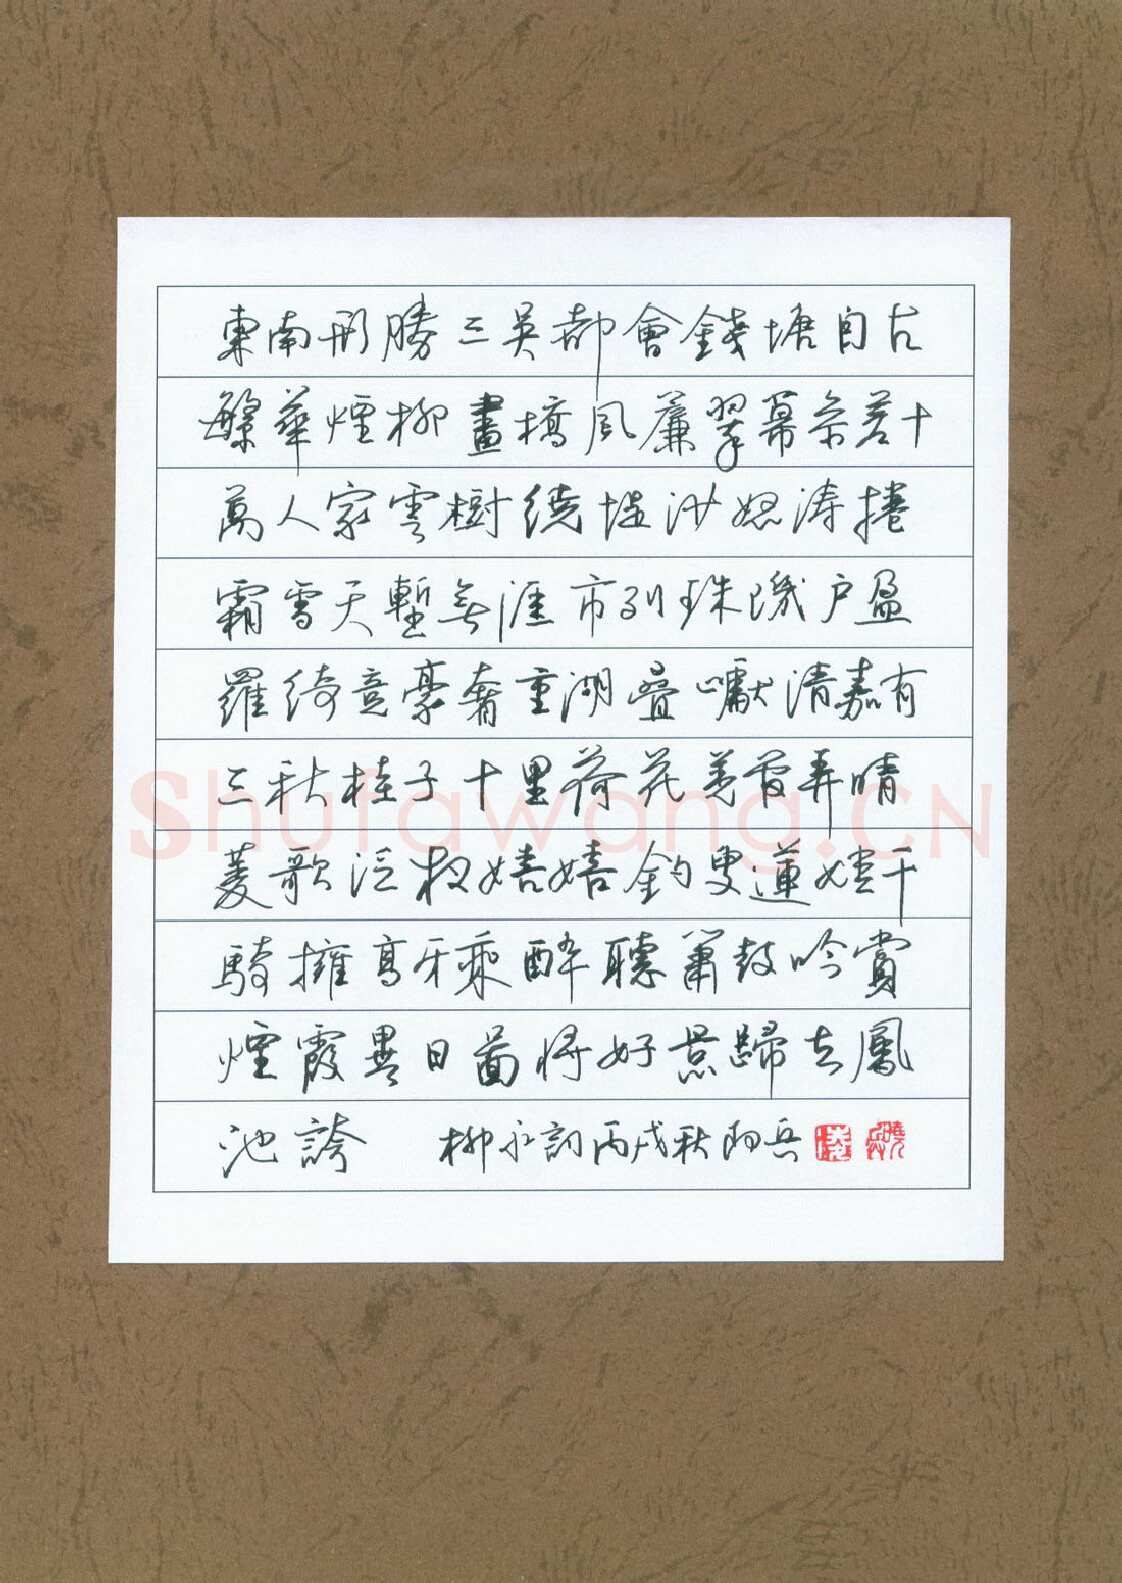 東南形勝三吳都會錢塘自古
繁華煙柳畫橋風簾翠幕參差十
萬人家雲樹繞堤沙怒涛捲
霜雪天塹無涯市列珠璣户盈
羅綺竞豪奢重湖叠巘清嘉有
三秋桂子十里荷花羌管弄晴
菱歌泛夜嬉嬉釣叟蓮娃千
騎擁高牙乘醉聽簫鼓吟賞
煙霞異日圖將好景歸去鳳
池誇 柳永詞丙戌秋
Shufawang.CN